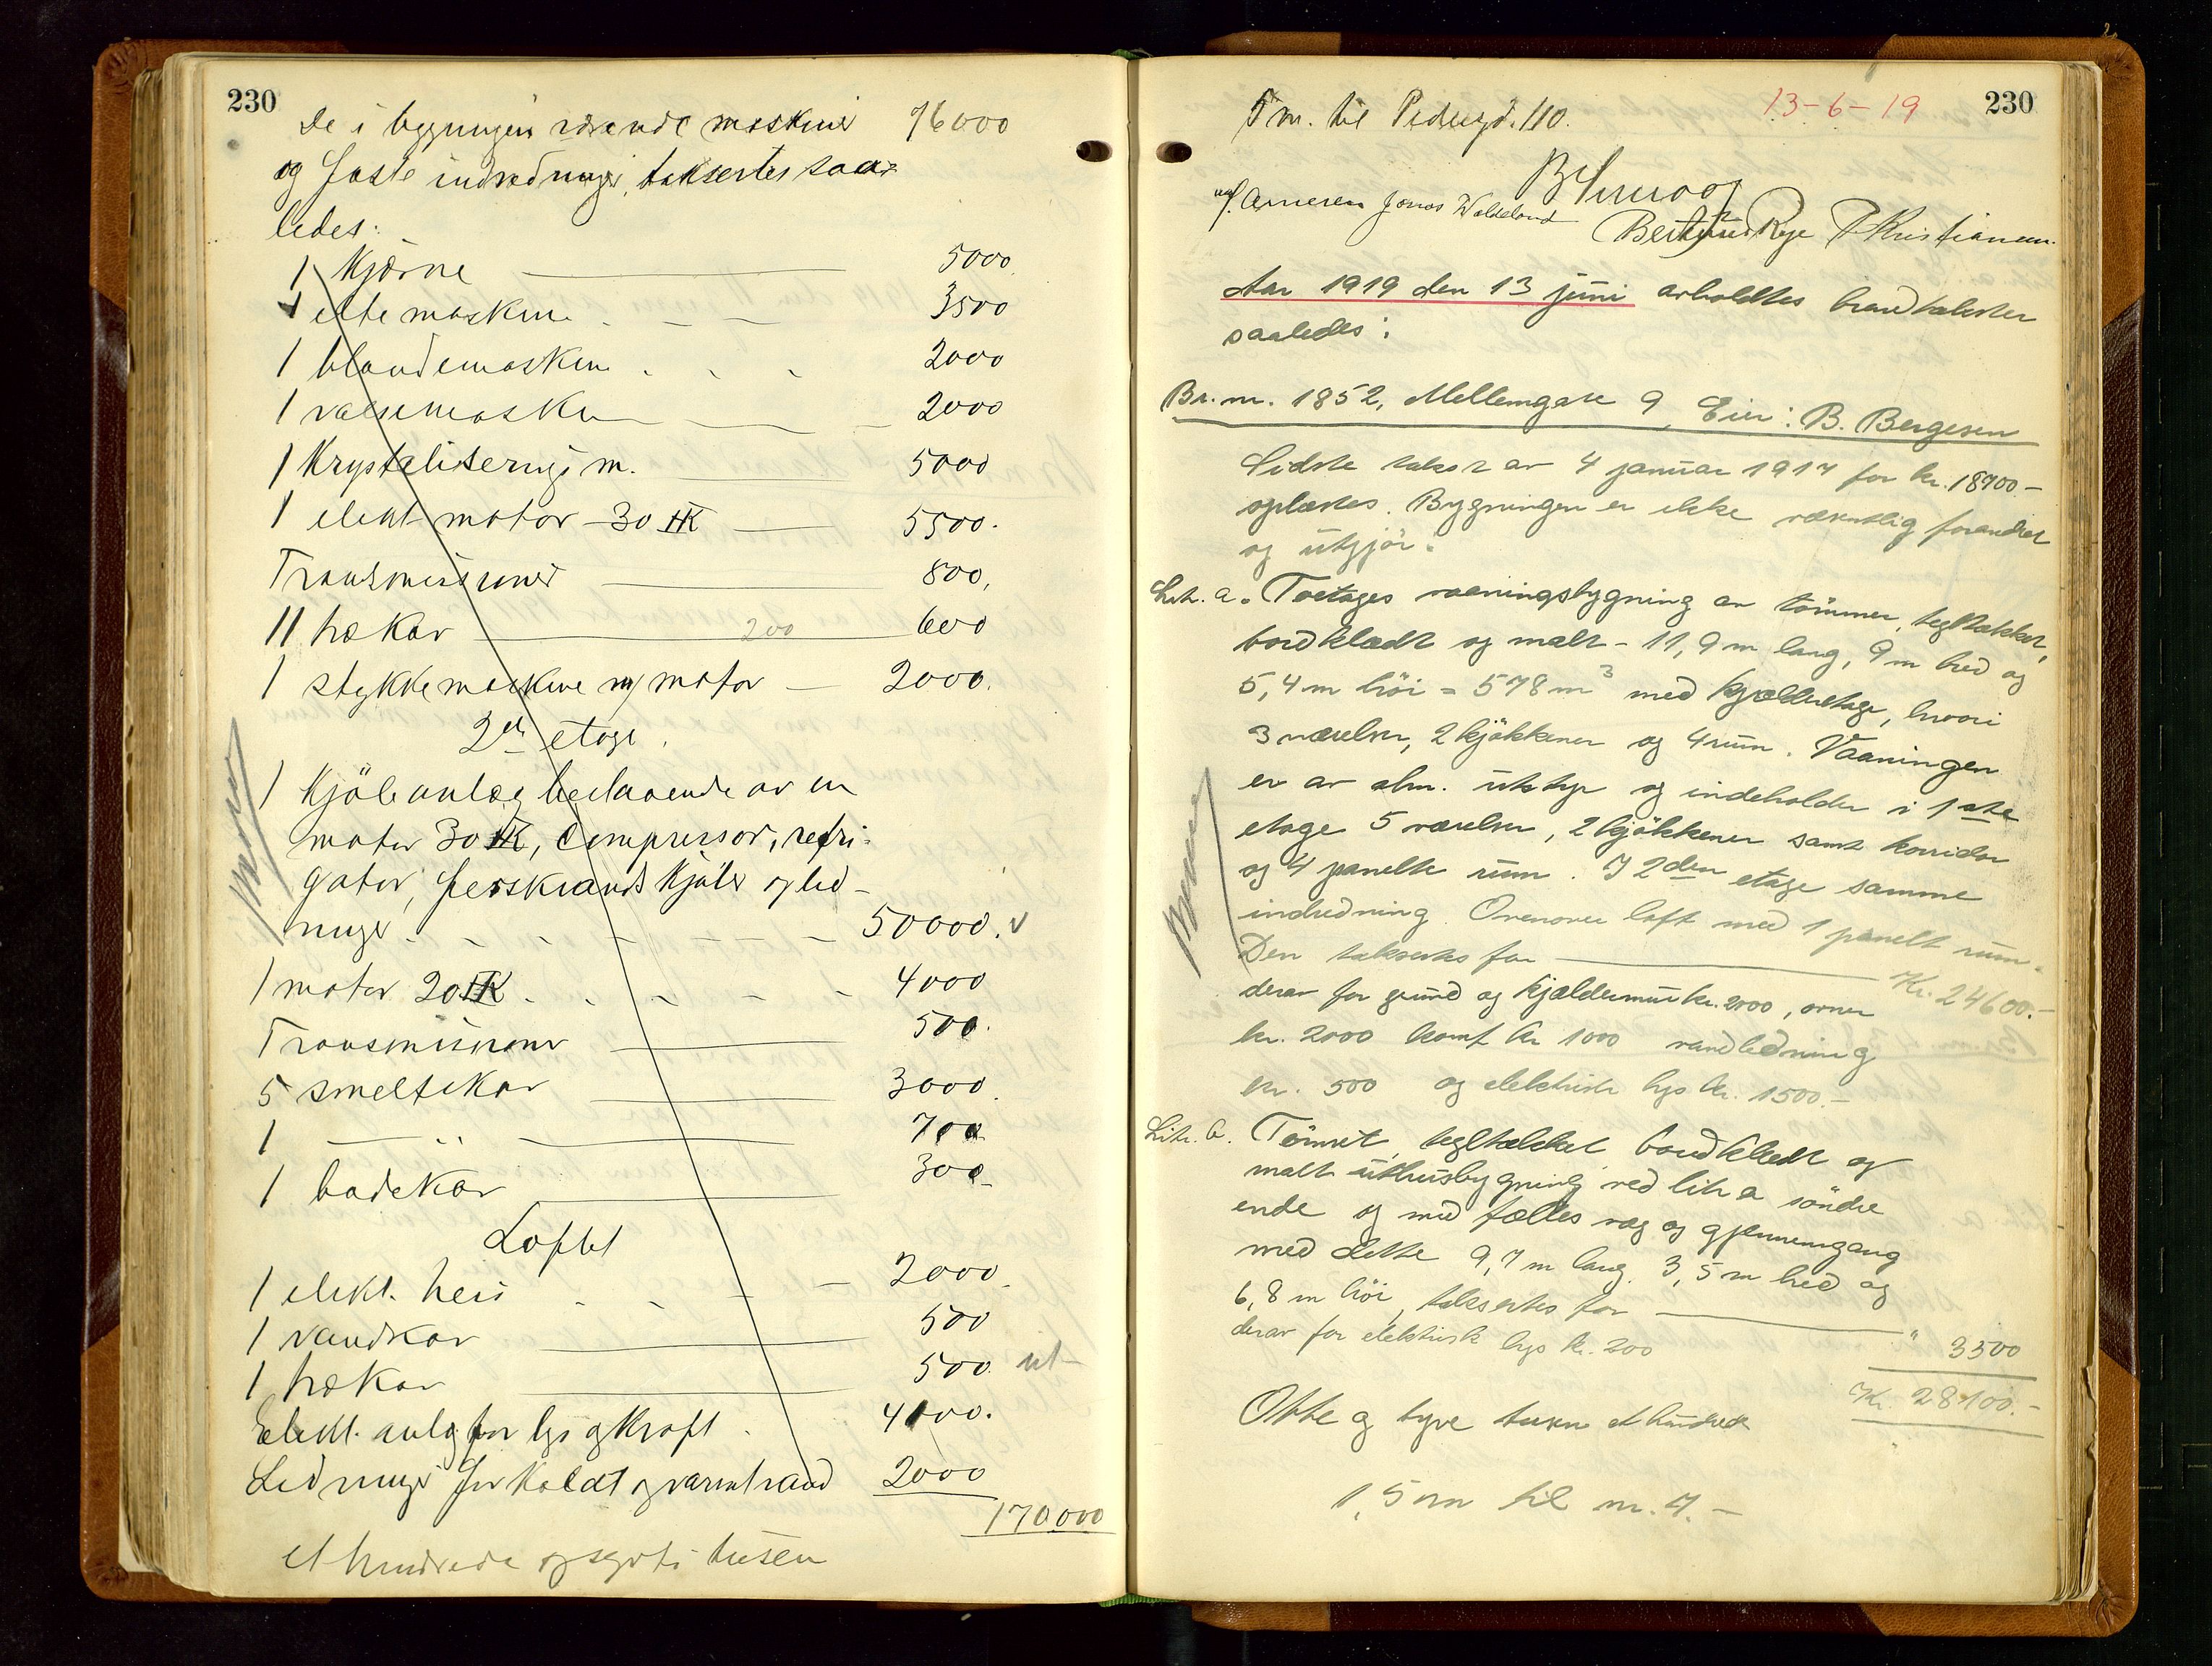 230
De i bygningen værende maskiner 76000
og faste indredninger, takseres saa-
ledes:
1 Kjærne 5000
1 elte maskine 3500
1 blandemaskin 2000
1 valsemaskin 2000
1 Krystaliserings m. 5000
1 elekt. motor - 30 HK 5500.
Transmissioner 800,
11 trækar 200 600
1 stykkemaskine m/ motor 2000.
2den etage.
1 Kjöleanlæg bestaaende av en
motor 30 HK, Compressor, refri-
gator, ferskvands kjöler og led-
ninger 50000. v
1 motor 20 HK 4000
Transmissioner 500.
5 smeltekar 3000.
1 — " — 700
1 badekar 300
Loftet
1 elekt. heis 2000.
1 vandkar 500
1 trækar 500. ut-
Elekt. anlæg for lys og Kraft. 4100.
Ledninger for Koldt og varmt vand 2000
170000
et hundrede og sytti tusen
5 m. til Pedersgd. 110. 13-6-19 230
Jonas Walseland
Kristiansen.
Aar 1919 den 13 juni avholdtes brandtakster
saaledes:
Br. nr. 1852, Mellemgate 9, Eier: B. Bergesen
Sidste takst av 4 januar 1917 for kr. 18700.-
oplæstes. Bygningen er ikke væsentlig forandret
og utgjör:
Litr. a. Toetages vaaningsbygning av tömmer, tegltækket,
bordklædt og malt - 11,9 m lang, 9 m bred og
5,4 m höi = 578 m³ med kjælderetage, hvori
3 værelser, 2 kjökkener og 4 rum. Vaaningen
er av alm. utstyr og indeholder i 1ste
etage 5 værelser, 2 kjökkener samt korridor
og 4 panelte rum. I 2den etage samme
indredning. Ovenover loft med 1 panelt rum.
Den takseres for Kr. 24600.-
derav for grund og kjældermur kr. 2000, ovner
kr. 2000 komf. kr 1000 vandledning
kr. 500 og elektrisk lys kr. 1500.-
Litr. b. Tömret, tegltækket bordklædt og
malt uthusbygning ved litr a söndre
ende og med fælles væg og gjennemgang
med dette 9,7 m lang, 3,5 m bred og
6,8 m höi, takseres for " 3500
derav for elektrisk lys kr. 200
Kr. 28100.-
Otte og tyve tusen et hundrede
1,5 m til nr. 7.-